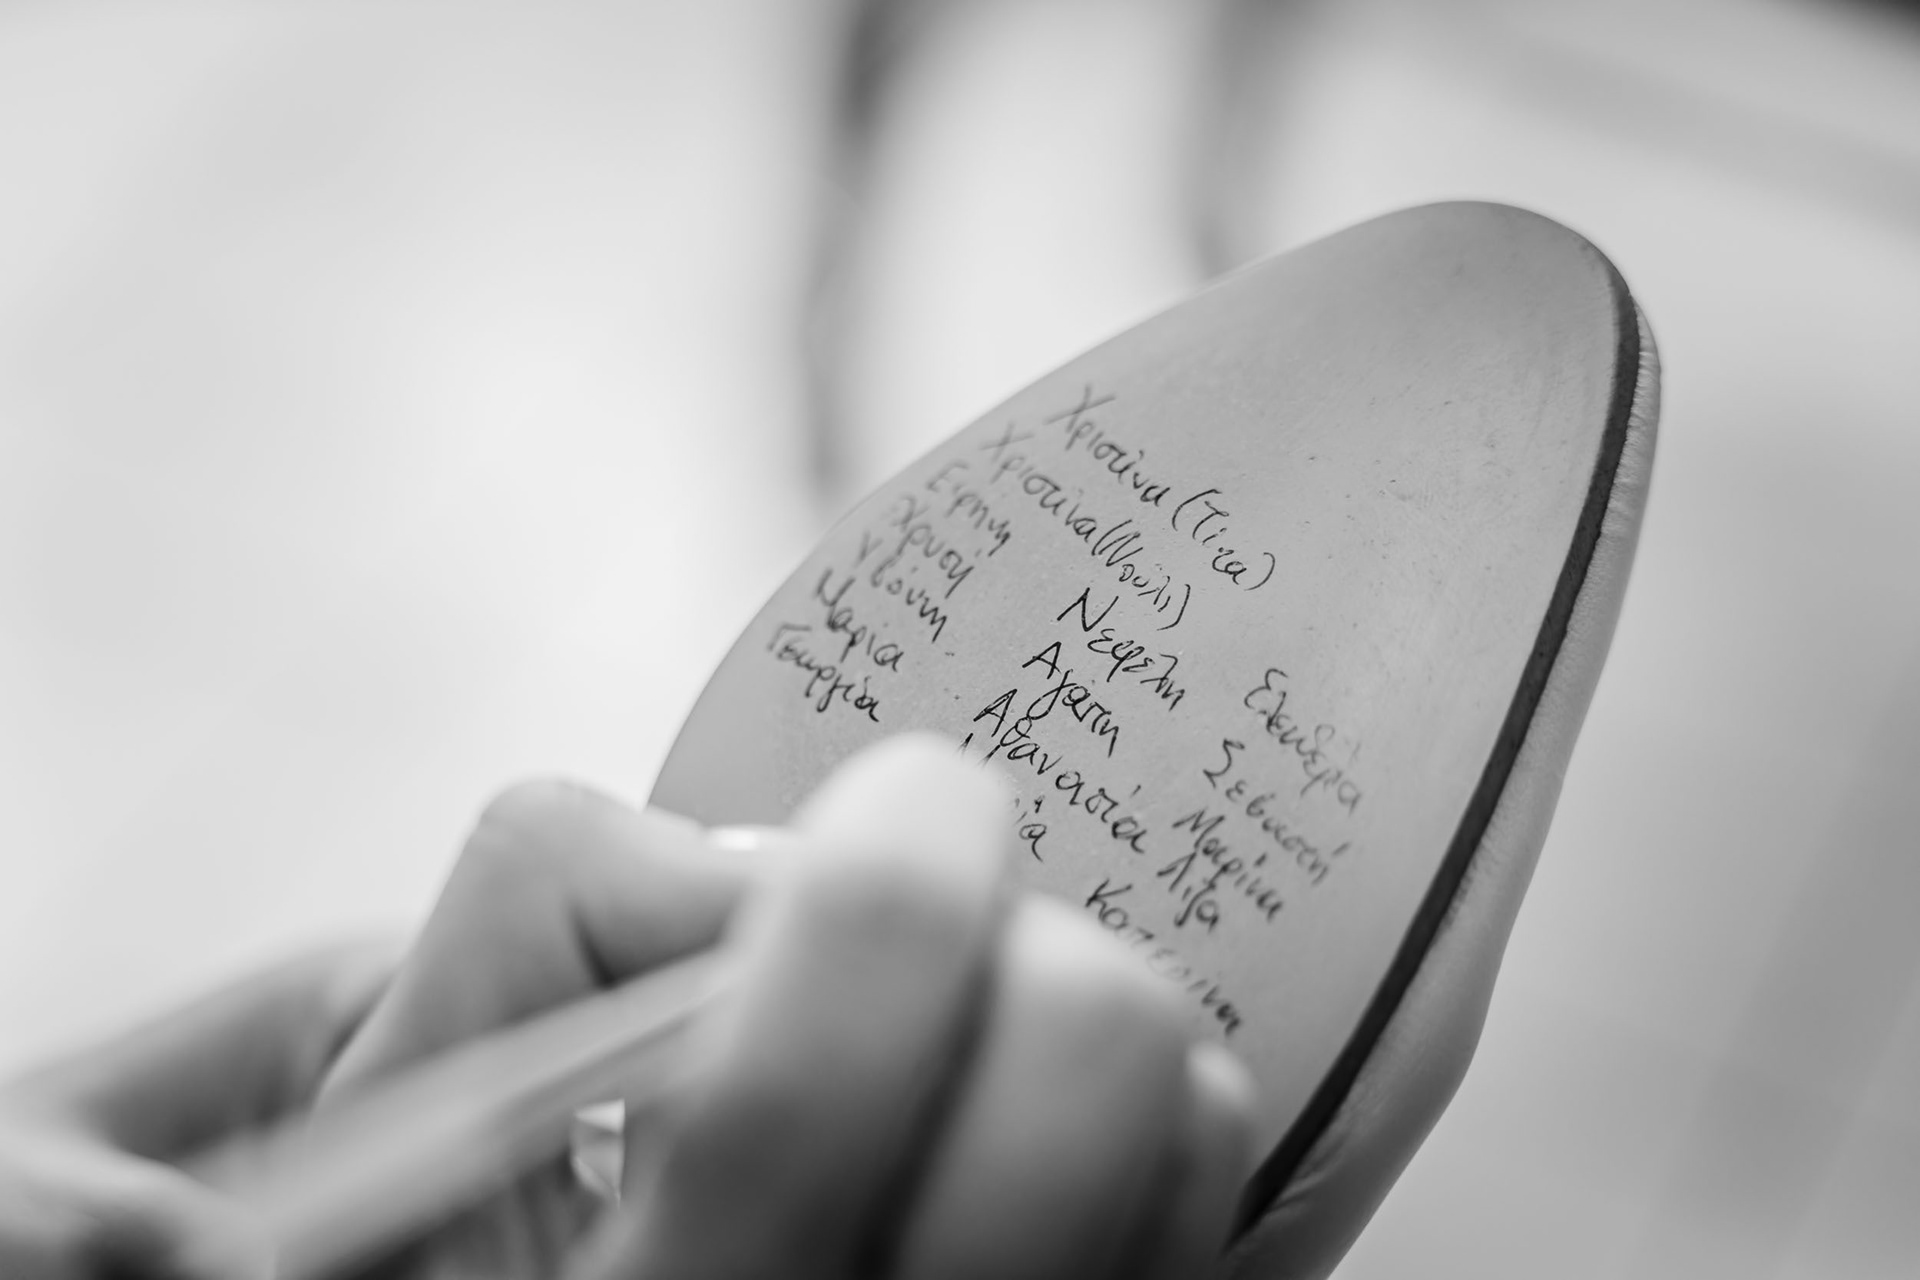 Χριστίνα (Τίτα)
Χριστίνα (Νούλι)
Ειρήνη
Χρυσή
Υβόννη
Μαρία
Γεωργία
Νεφέλη
Αγάπη
Αθανασία
Ελευθερία
Σεβαστή
Μαρίνα
Λίζα
Κατερίνα